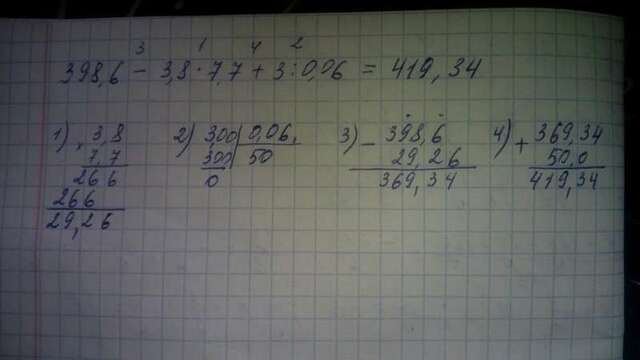 3 1 4 2
398,6 - 3,8 · 7,7 + 3 : 0,06 = 419,34
1) × 3,8 2) 3,00 | 0,06 3) - 398,6 4) + 369,34
7,7 300 50 29,26 50,0
266 0 369,34 419,34
266
29,26